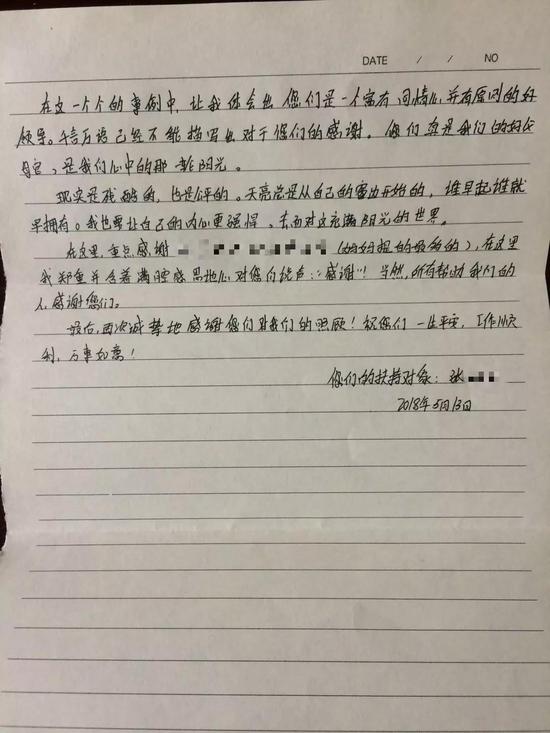 DATE / / NO
在这一个个的事例中,让我体会出您们是一个富有同情心,并有原则的好
领导。千言万语已经不能描写出对于您们的感谢。您们真是我们的好父
母官,是我们心中的那一轮阳光。
现实是残酷的,也是公平的。天亮总是从自己的窗边开始的,谁早起谁就
早拥有。我也要让自己的内心更强悍,去面对这充满阳光的世界。
在这里,重点感谢(妈妈提的最多的),在这里
我郑重并含着满腔感恩地心对您们说声:"感谢"!当然,所有帮助我们的
人,感谢您们。
最后,再次诚挚地感谢您们对我们的照顾!祝您们一生平安,工作顺
利,万事如意!
您们的扶持对象:张
2018年5月13日